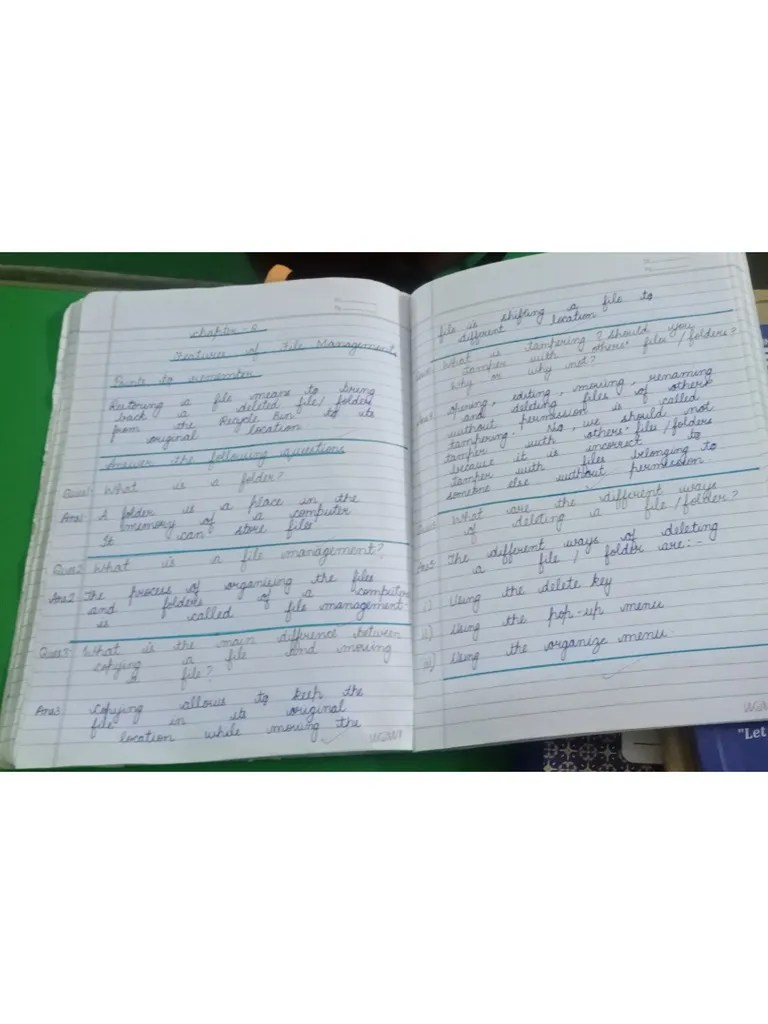 Chapter -
Features of File Management
Points to remember
Restoring a file means to bring
back a deleted file/ folder
from the Recycle Bin to its
original location
Answer the following questions
Ques1 What is a folder?
Ans1 A folder is a place in the
memory of a computer
It can store files
Ques2 What is a file management?
Ans2 The process of organising the files
and folders of a computer
is called file management.
Ques3 What is the main diffrence between
copying a file and moving
a file?
Ans3 Copying allows to keep the
file in its original
location while moving the
file is shifting a file to
different location
What is tampering? Should you
tamper with others' files / folders?
Why or why not?
Opening, editing, moving, renaming
and deleting files of others
without permission is called
tampering. No, we should not
tamper with others files/folders
because it is incorrect to
tamper with files belonging to
someone else without permission.
What are the different ways
of deleting a file / folder?
Ans5 The different ways of deleting
a file / folder are:-
i) Using the delete key
ii) Using the pop-up menu
iii) Using the organize menu
"Let